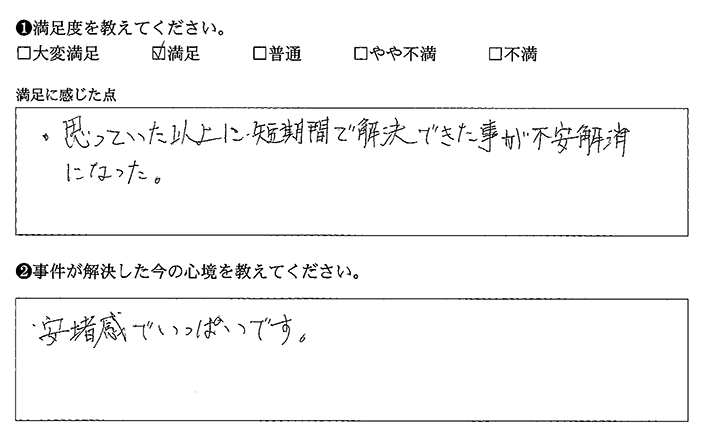 ❶満足度を教えてください。
□大変満足 ☑満足 □普通 □やや不満 □不満
満足に感じた点
・思っていた以上に短期間で解決できた事が不安解消
になった。
❷事件が解決した今の心境を教えてください。
・安堵感でいっぱいです。